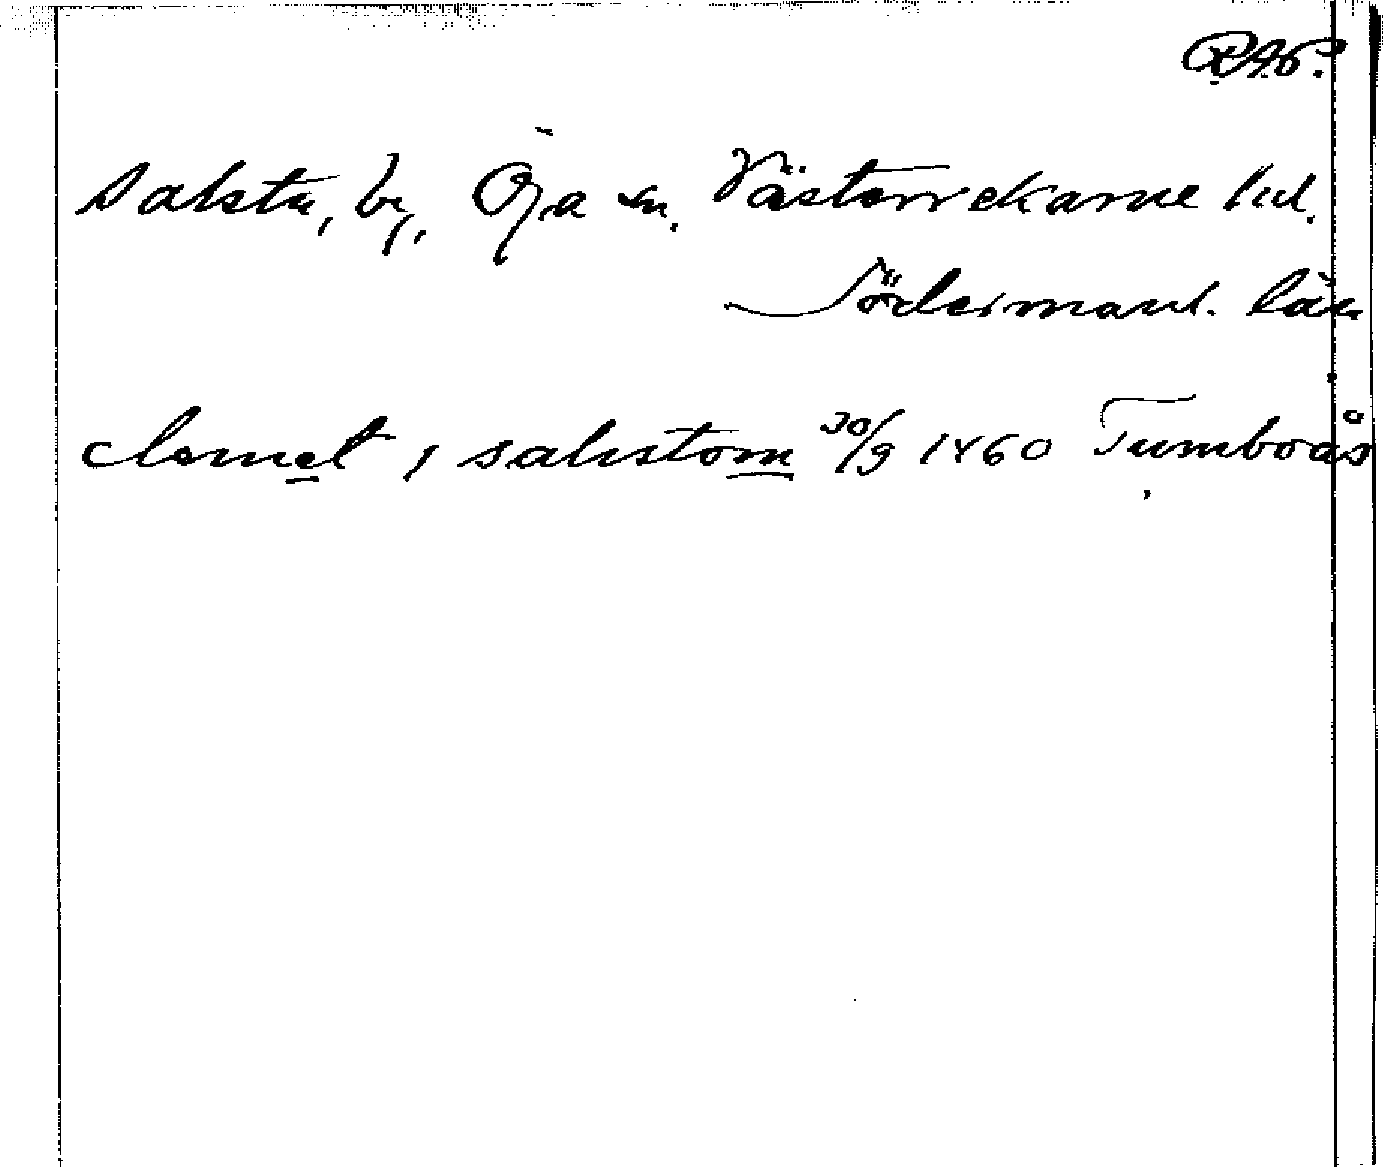 RAP.
Salsta, by, Öja sn. Västerrekarne hd.
Södermanl. län
clemet i salustom 30/9 1460 Tumboås